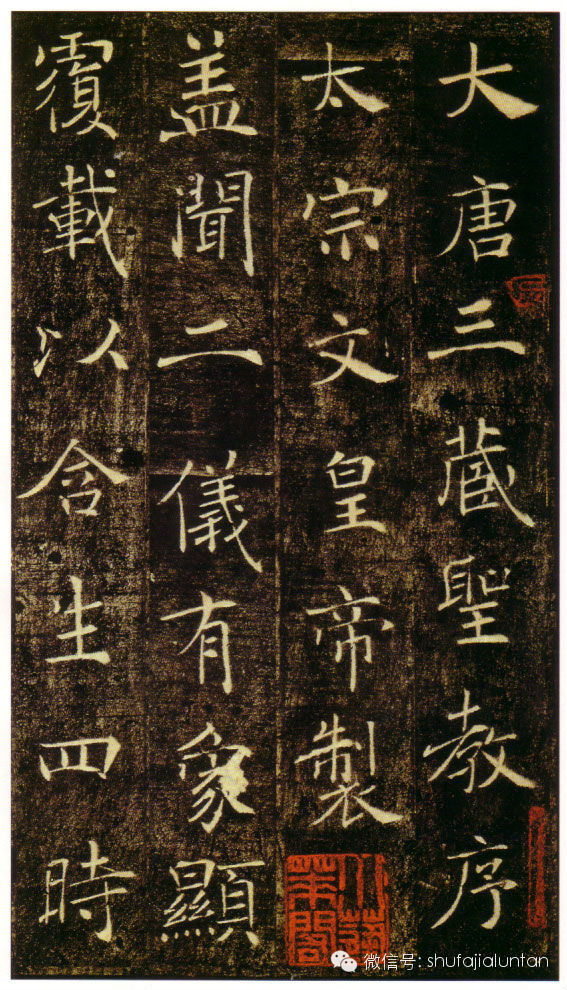 大唐三藏聖教序
太宗文皇帝製
盖聞二儀有象顯
覆載以含生四時
微信号: shufajialuntan